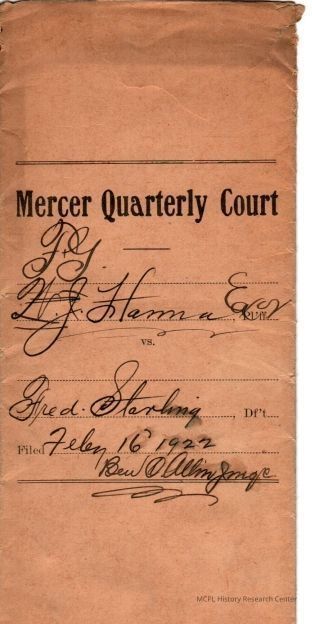 Mercer Quarterly Court
W. J. Hanna, Exor Pl'ff
vs.
Fred. Starling, Df't.
Filed Feby 16 1922
Ben Allin Judge
MCPL History Research Center